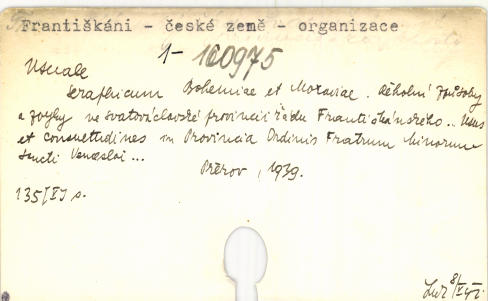 Františkáni - české země - organizace
1- 160975
Usuale
Seraphicum Bohemiae et Moraviae. Řeholní způsoby
a zvyky ve svatováclavské provincii řádu Františkánského.. Usus
et consuetudines in Provincia Ordinis Fratrum Minorum
Sancti Venceslai ...
Přerov, 1939.
135/VI s.